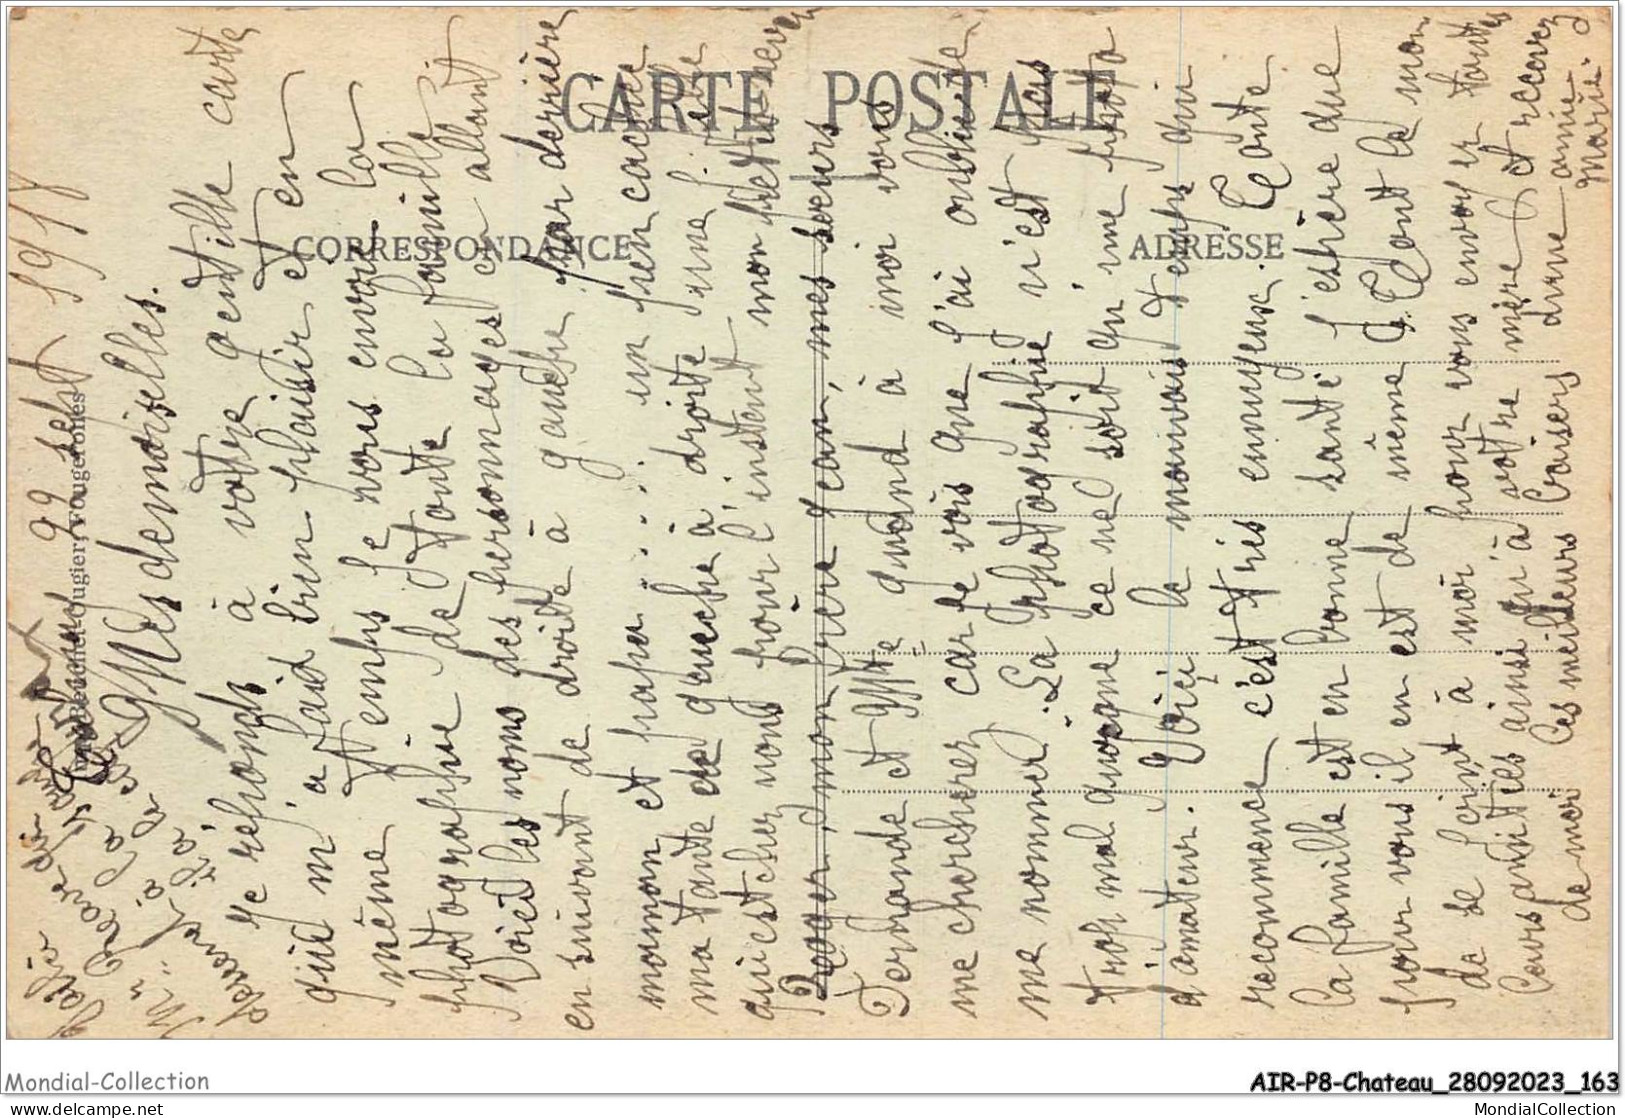 CARTE POSTALE
CORRESPONDANCE
ADRESSE
22 sept 1918
Mesdemoiselles.
Je réponds à votre gentille carte
qui m'a faid bien plaisir et en
même temps je vous envoi la
photographie de toute la famille.
Voici les noms des personnages en allant
en suivant de droite à gauche par derrière
maman et papa ..... un peu cachée
ma tante de gauche à droite une petite
qui est chez nous pour l'instent mon petit neveu
Roger, mon frère Jean, mes soeurs
Fernande et Yvtte quand à moi vous
me chercherez car je vois que j'ai oublié de
me nommer. La photographie n'est pas
trop mal quoique ce ne soit qu'une photo
d'amateur. Voiçi le mauvais temps qui
recommence c'est très ennuyeux. Toute
la famille est en bonne santé j'espère que
pour vous il en est de même. Tont le mon
de se joint à moi pour vous envoyer tout
leurs amitiés ainsi qu'à votre mère et recevez
de moi les meilleurs baisers d'une amie
Marie.
Mondial-Collection
AIR-P8-Chateau_28092023_163
delcampe.net
MondialCollection